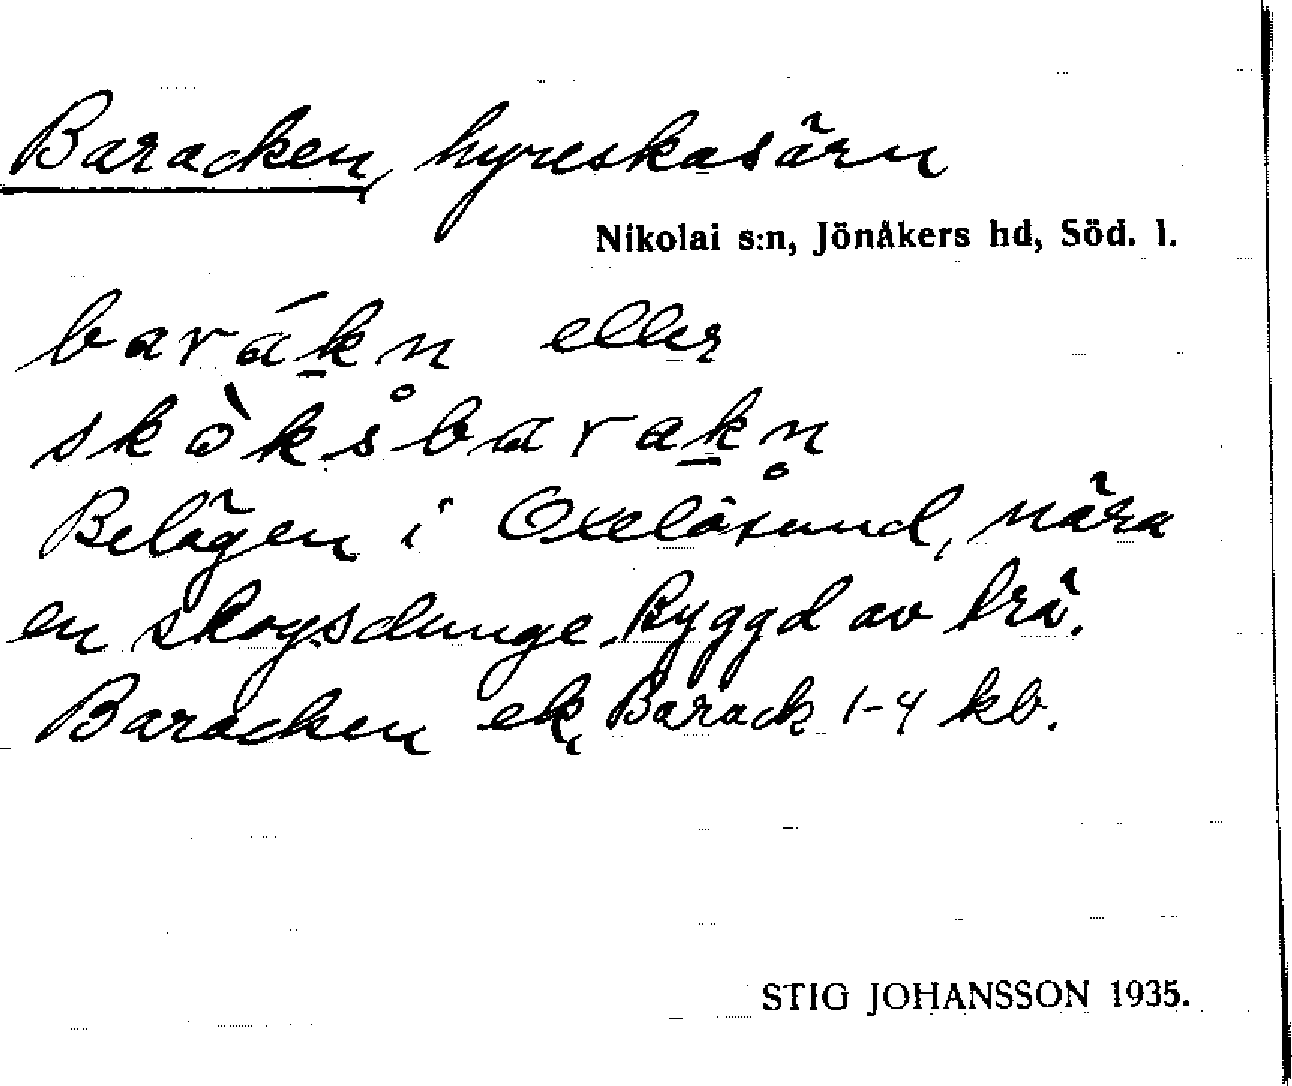 Baracken, hyreskasärn
Nikolai s:n, Jönåkers hd, Söd. l.
barák̲n eller
skòks̊barak̲n̥
Belägen i Oxelösund, nära
en skogsdunge. Byggd av trä.
Baracken ek, Barack 1-4 kb.
STIG JOHANSSON 1935.